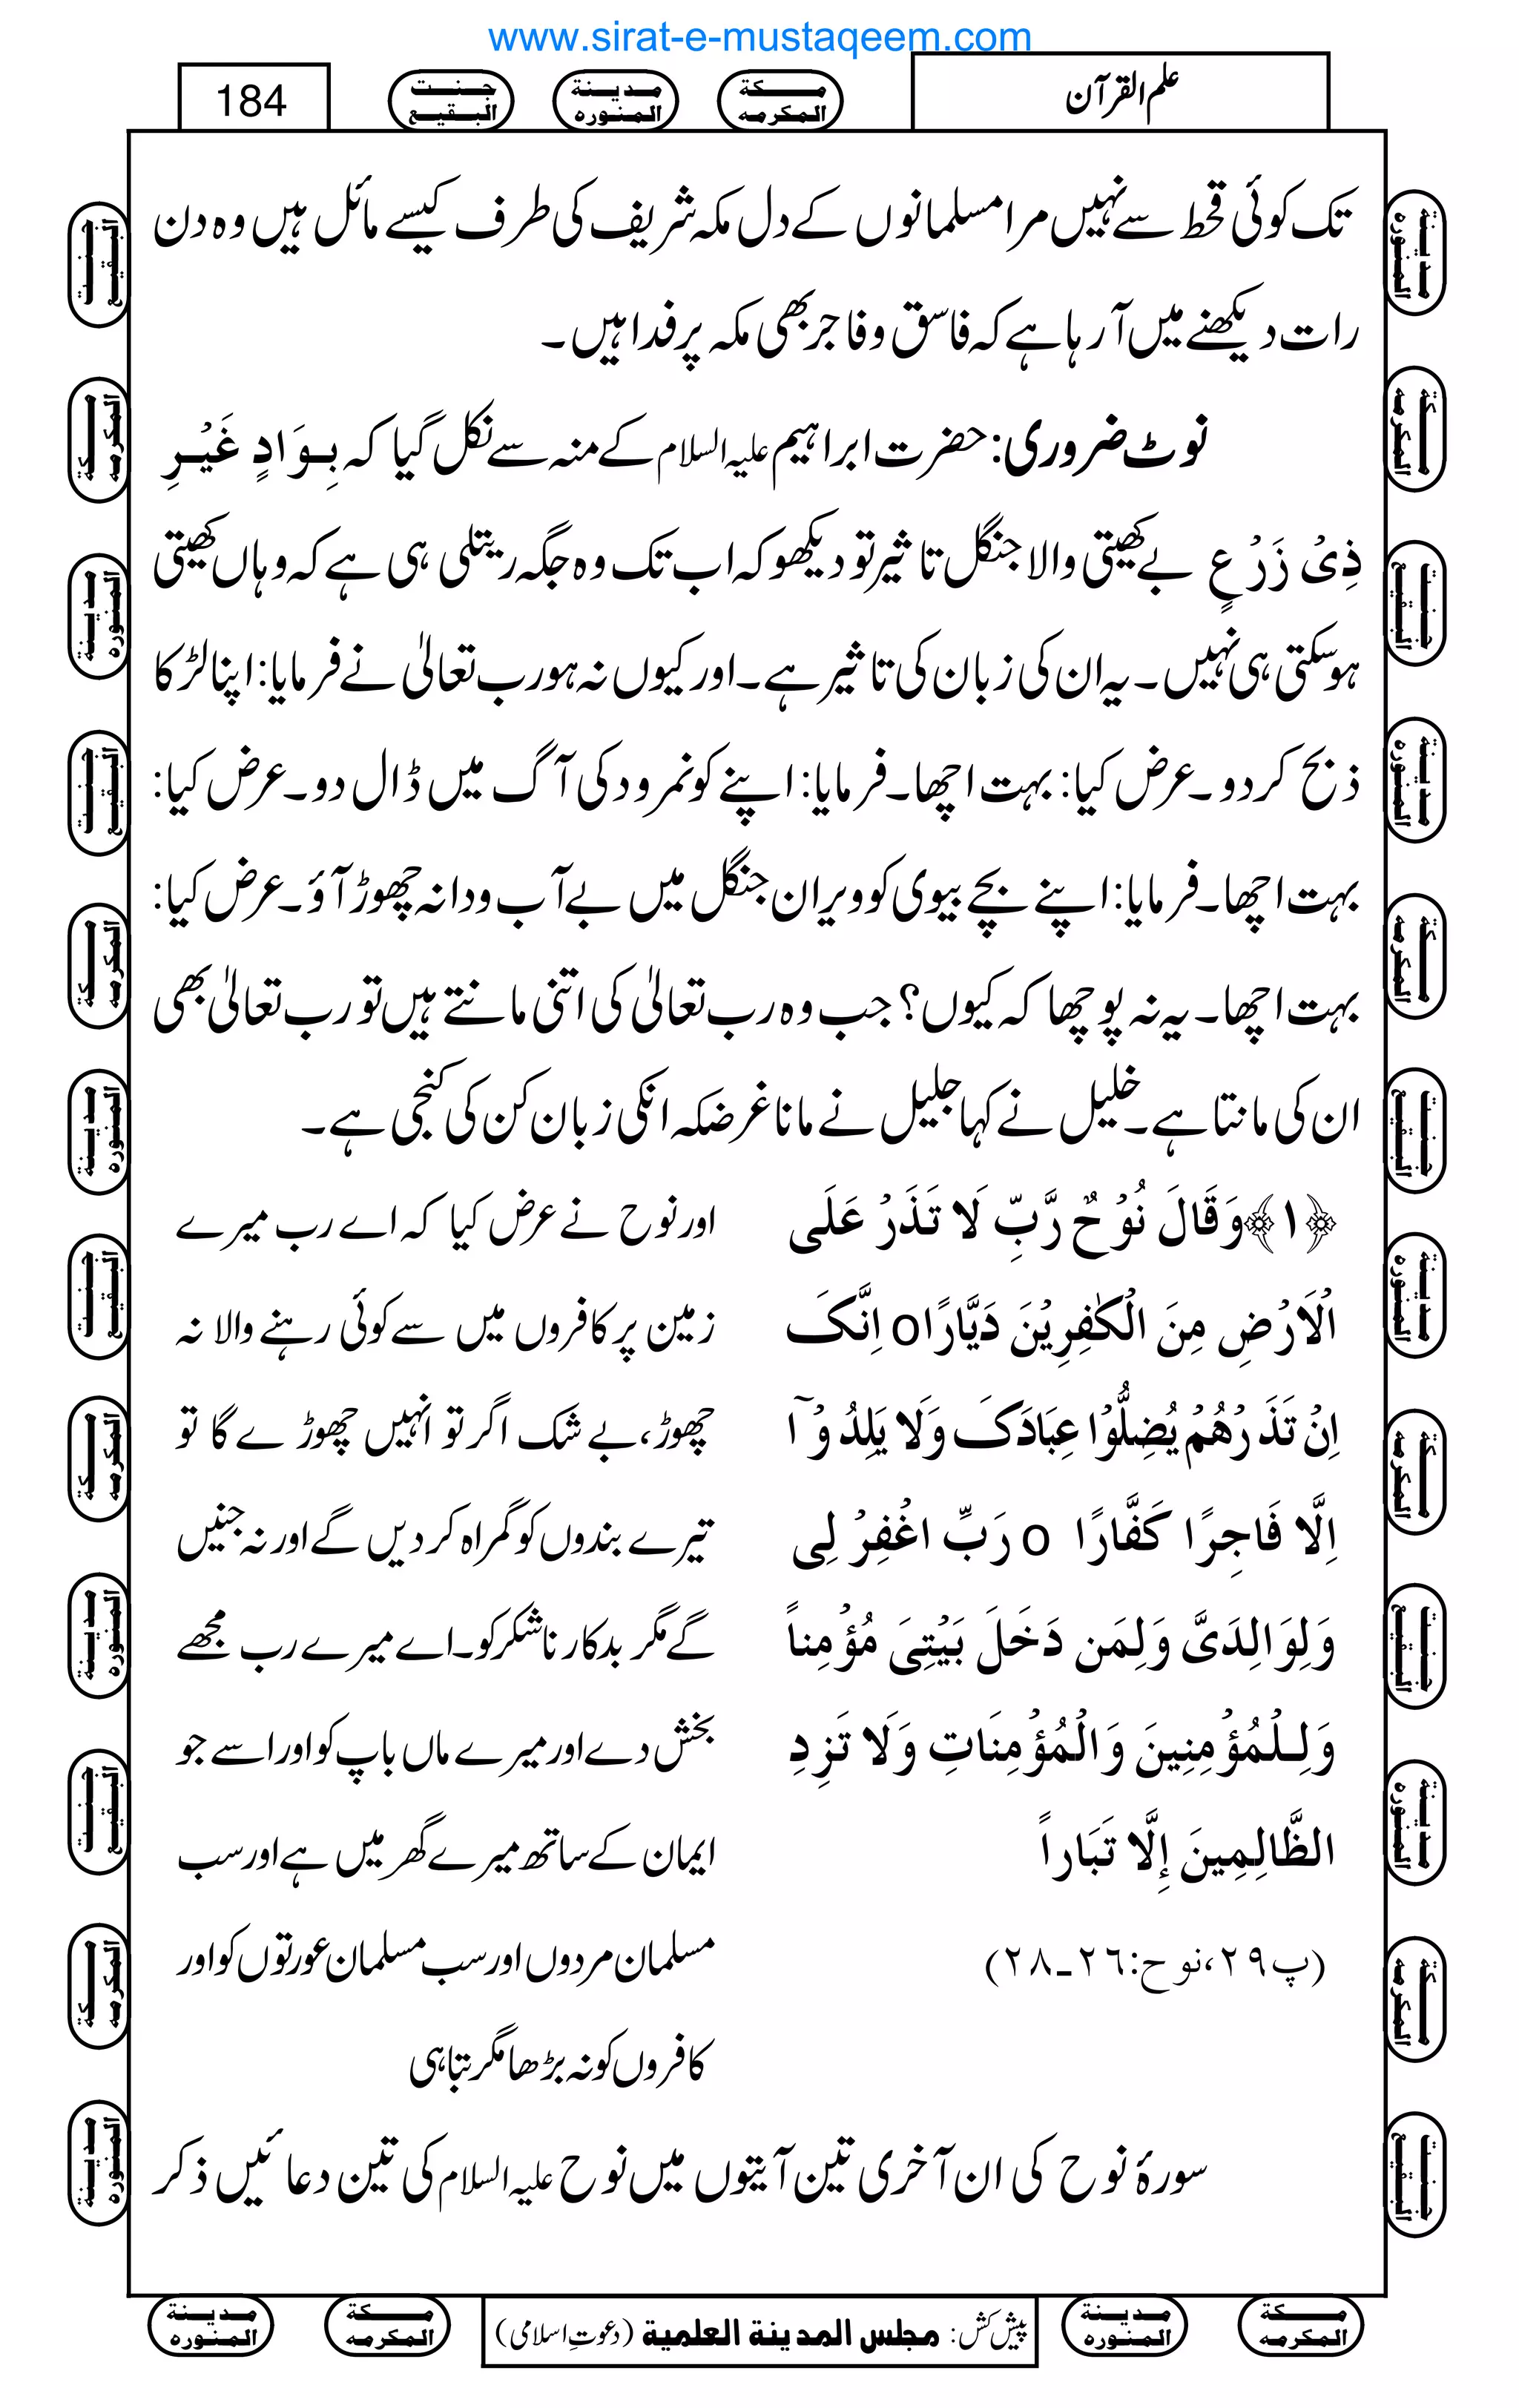 www.sirat-e-mustaqeem.com
علم القرآن
مكة المكرمه
مدينة المنوره
جنت البقيع
184
تک کوئی قحط سے نہیں مرا مسلمانوں کے دل مکہ شریف کی طرف کیسے مائل ہیں وہ دن
رات دیکھنے میں آرہا ہے کہ فاسق وفاجر بھی مکہ پر فدا ہیں۔
نوٹ ضروری: حضرت ابراہیم علیہ السلام کے منہ سے نکل گیا کہ بِوَادٍ غَیْرِ
ذِیْ زَرْعٍ بے کھیتی والا جنگل تاثیر تو دیکھو کہ اب تک وہ جگہ ریتلی ہی ہے کہ وہاں کھیتی
ہوسکتی ہی نہیں۔ یہ ان کی زبان کی تاثیر ہے۔ اور کیوں نہ ہو رب تعالیٰ نے فرمایا: اپنا لڑکا
ذبح کردو۔ عرض کیا: بہت اچھا۔ فرمایا: اپنے کو نمرود کی آگ میں ڈال دو۔ عرض کیا:
بہت اچھا۔ فرمایا: اپنے بچے بیوی کو ویران جنگل میں بے آب ودانہ چھوڑ آؤ۔ عرض کیا:
بہت اچھا۔ یہ نہ پوچھا کہ کیوں؟ جب وہ رب تعالیٰ کی اتنی مانتے ہیں تو رب تعالیٰ بھی
ان کی مانتا ہے۔ خلیل نے کہا جلیل نے مانا غرضکہ انکی زبان کن کی کنجی ہے۔
﴿۱﴾وَقَالَ نُوْحٌ رَّبِّ لَا تَذَرْ عَلَی
الْاَرْضِ مِنَ الْکٰفِرِیْنَ دَیَّارًاo اِنَّکَ
اِنْ تَذَرْهُمْ یُضِلُّوْا عِبَادَکَ وَلَا یَلِدُوْٓا
اِلَّا فَاجِرًا کَفَّارًا o رَبِّ اغْفِرْ لِی
وَلِوَالِدَیَّ وَلِمَن دَخَلَ بَیْتِیَ مُؤْمِناً
وَلِلْمُؤْمِنِینَ وَالْمُؤْمِنَاتِ وَلَا تَزِدِ
الظَّالِمِینَ إِلَّا تَبَاراً
(پ۲۹،نوح:۲٦۔۲۸)
اور نوح نے عرض کیا کہ اے رب میرے
زمین پر کافروں میں سے کوئی رہنے والا نہ
چھوڑ، بے شک اگر تو انہیں چھوڑے گا تو
تیرے بندوں کو گمراہ کردیں گے اور نہ جنیں
گے مگر بدکار ناشکر کو۔ اے میرے رب مجھے
بخش دے اور میرے ماں باپ کو اور اسے جو
ایمان کے ساتھ میرے گھر میں ہے اور سب
مسلمان مردوں اور سب مسلمان عورتوں کو اور
کافروں کو نہ بڑھا مگر تباہی
سورۂ نوح کی ان آخری تین آیتوں میں نوح علیہ السلام کی تین دعائیں ذکر
پیش کش: مجلس المدینة العلمیة (دعوتِ اسلامی)